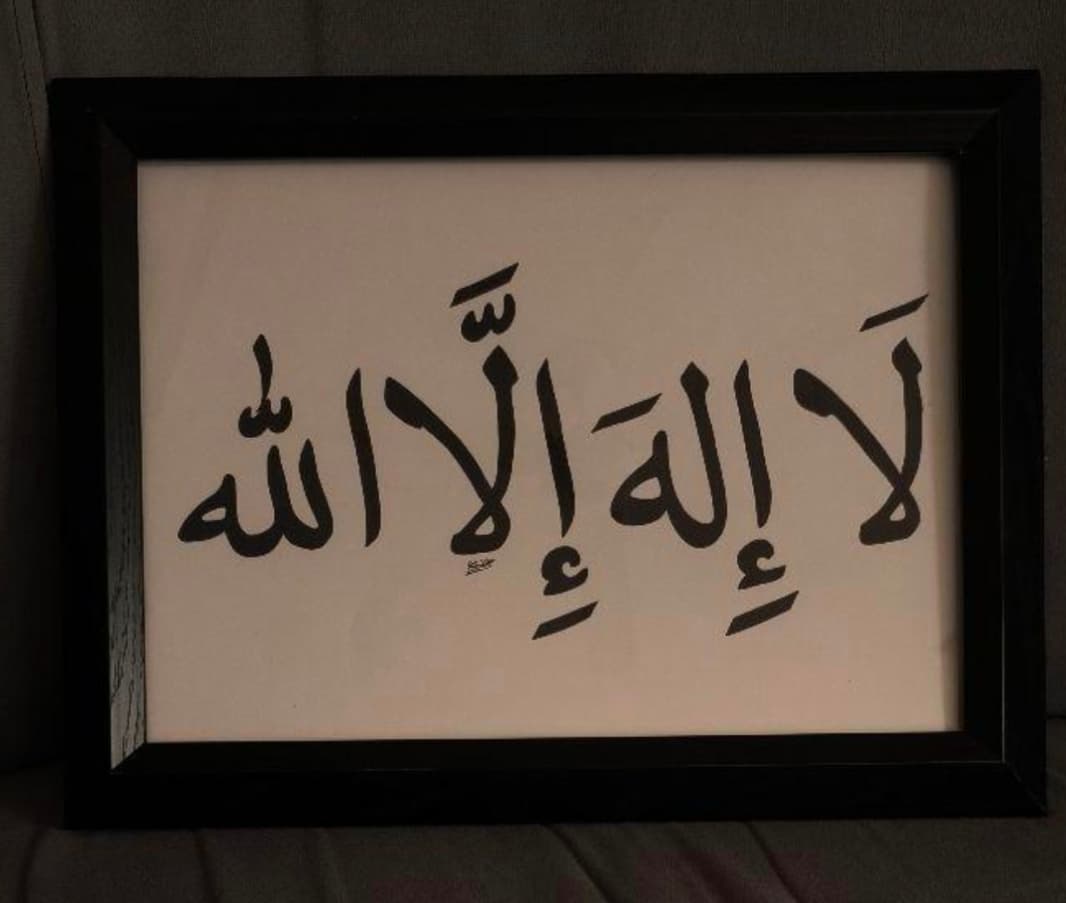 لَا إِلهَ إِلَّا اللّٰه